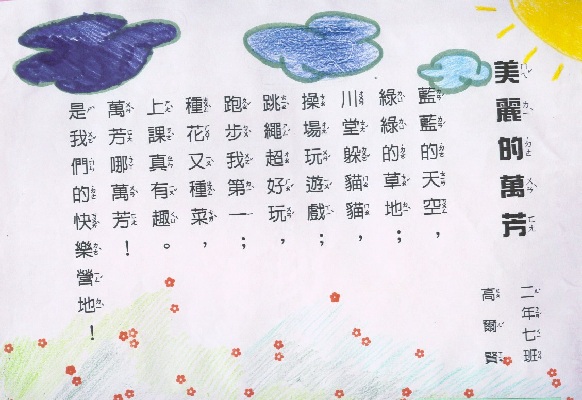 美麗的萬芳
二年七班
高爾賢
藍藍的天空，
綠綠的草地；
川堂躲貓貓，
操場玩遊戲；
跳繩超好玩，
跑步我第一；
種花又種菜，
上課真有趣。
萬芳哪萬芳！
是我們的快樂營地！